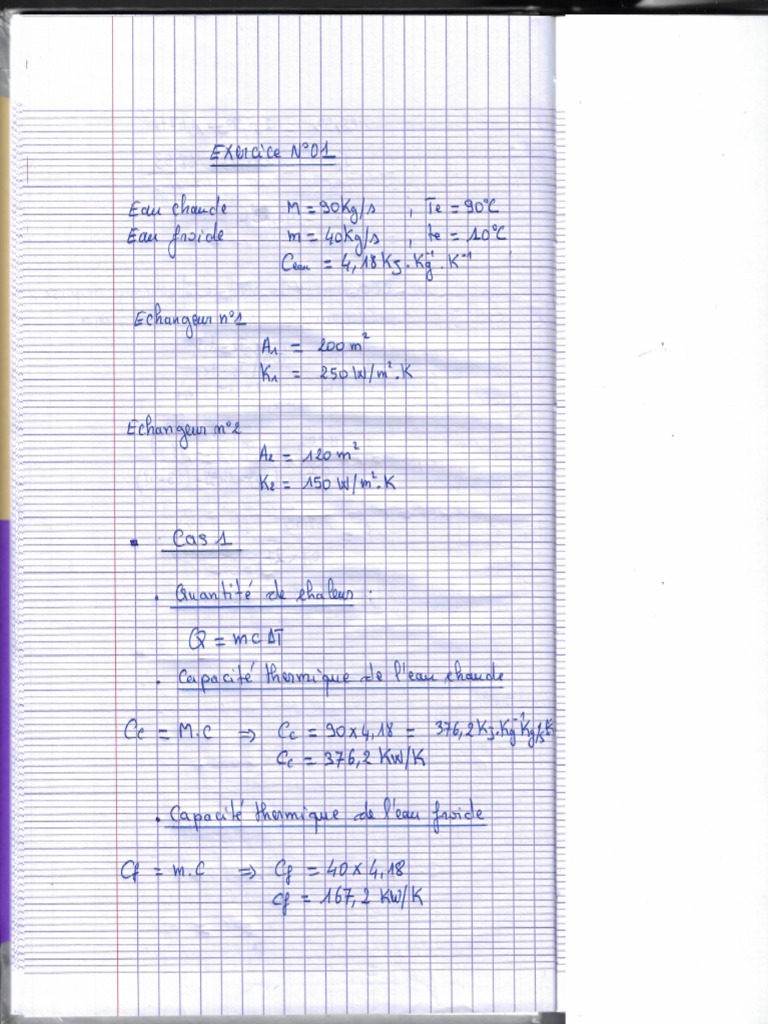 Exercice N°01
Eau chaude M = 90Kg/s , Te = 90°C
Eau froide m = 40Kg/s , te = 10°C
Ceau = 4,18 KJ.Kg⁻¹.K⁻¹
Echangeur n°1
A1 = 200 m²
K1 = 250 W/m².K
Echangeur n°2
A2 = 120 m²
K2 = 150 W/m².K
Cas 1
Quantité de chaleur :
Q = mc ΔT
Capacité thermique de l'eau chaude
Cc = M.C ⇒ Cc = 90 x 4,18 = 376,2 KJ.Kg⁻¹Kg/sK
Cc = 376,2 KW/K
Capacité thermique de l'eau froide
Cf = m.C ⇒ Cf = 40 x 4,18
Cf = 167,2 KW/K